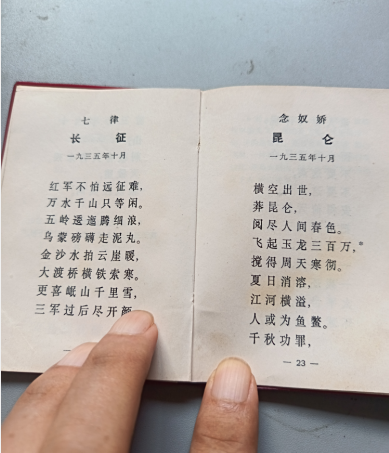 七律
长征
一九三五年十月
红军不怕远征难，
万水千山只等闲。
五岭逶迤腾细浪，
乌蒙磅礴走泥丸。
金沙水拍云崖暖，
大渡桥横铁索寒。
更喜岷山千里雪，
三军过后尽开颜
念奴娇
昆仑
一九三五年十月
横空出世，
莽昆仑，
阅尽人间春色。
飞起玉龙三百万，*
搅得周天寒彻。
夏日消溶，
江河横溢，
人或为鱼鳖。
千秋功罪，
— 23 —